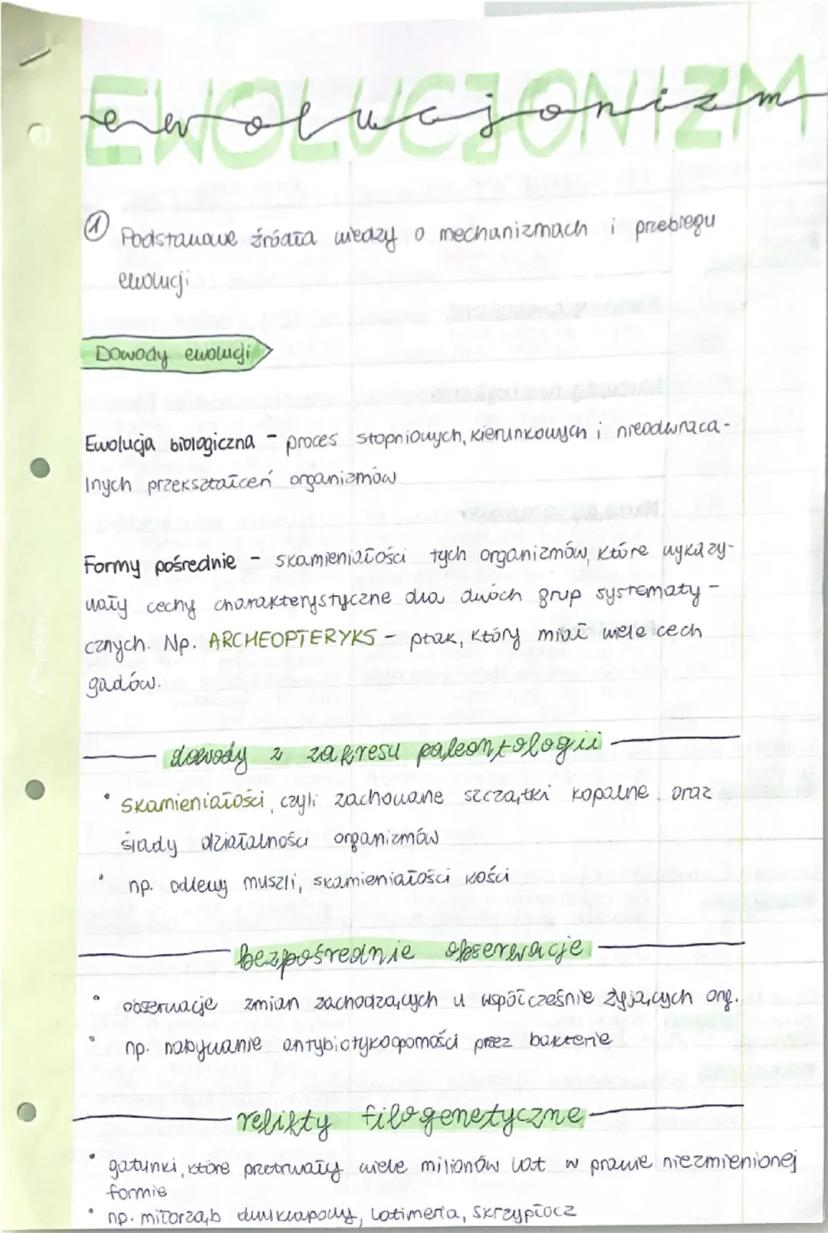 EWOLUCJONIZM
ewolucjonizm
① Podstawowe źródła wiedzy o mechanizmach i przebiegu
ewolucji
Dowody ewolucji
Ewolucja biologiczna – proces stopniowych, kierunkowych i nieodwraca-
lnych przekształceń organizmów
Formy pośrednie – skamieniałości tych organizmów, które wykazy-
wały cechy charakterystyczne dla dwóch grup systematy-
cznych. Np. ARCHEOPTERYKS – ptak, który miał wiele cech
gadów.
dowody z zakresu paleontologii
• skamieniałości, czyli zachowane szczątki kopalne oraz
ślady działalności organizmów
• np. odlewy muszli, skamieniałości kości
bezpośrednie obserwacje
• obserwacje zmian zachodzących u współcześnie żyjących org.
• np. nabywanie antybiotykoopornośći przez bakterie
relikty filogenetyczne
• gatunki, które przetrwały wiele milionów lat w prawie niezmienionej
formie
• np. miłorząb dwuklapowy, latimeria, skrzypłocz